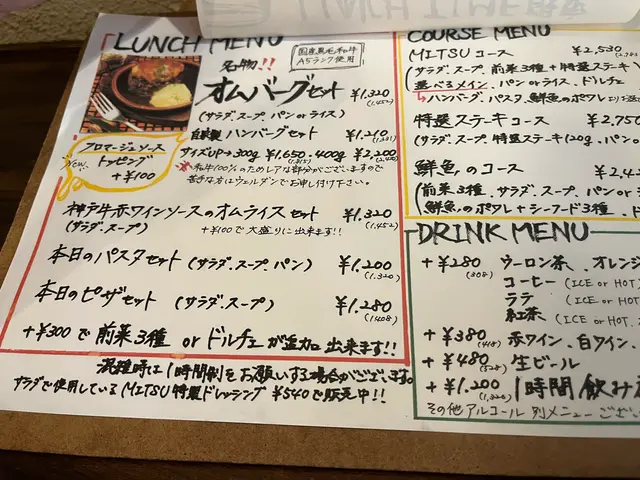 LUNCH MENU
国産黒毛和牛
A5ランク使用
名物!!
オムバーグセット ¥1.320
(1.452)
(サラダ.スープ.パンorライス)
自家製 ハンバーグセット ¥1.210
(1.331)
サイズUP→300g ¥1.650.400g ¥2.200
(1.815) (2.420)
※和牛100%のためレアな部分がございますので
苦手な方はウェルダンでお申し付け下さい。
フロマージュソース
New トッピング
+¥100
神戸牛赤ワインソースのオムライスセット ¥1.320
(1.452)
(サラダ.スープ) +¥100で大盛りに出来ます!!
本日のパスタセット (サラダ.スープ.パン) ¥1.200
(1.320)
本日のピザセット (サラダ.スープ) ¥1.280
(1408)
+¥300で前菜3種 or ドルチェが追加出来ます!!
混雑時は1時間制をお願いする場合がございます。
サラダで使用しているMITSU特製ドレッシング ¥540で販売中!!
COURSE MENU
MITSUコース ¥2,530
(サラダ.スープ.前菜3種+特選ステーキ
選べるメイン.パンorライス.ドルチェ
↳ハンバーグ.パスタ.鮮魚のポワレより
特選ステーキコース ¥2,750
(サラダ.スープ.特選ステーキ120g.パン
鮮魚のコース ¥2,4
(前菜3種.サラダ.スープ.パンo
鮮魚のポワレ+シーフード3種.ド
DRINK MENU
+¥280 ウーロン茶、オレンジ
(308) コーヒー (ICE or HOT
ラテ (ICE or HOT
紅茶 (ICE or HOT
+¥380 赤ワイン、白ワイン
(418)
+¥480 生ビール
(528)
+¥1.200 1時間飲み
(1,320)
その他アルコール 別メニューござい